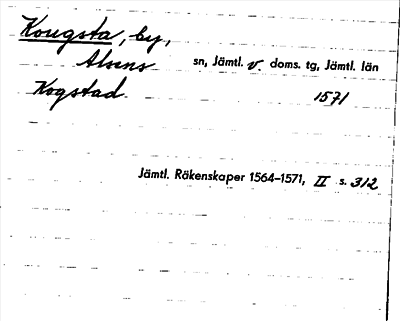 Kougsta, by,
Alsens sn, Jämtl. v. doms. tg, Jämtl. län
Kogstad 1571
Jämtl. Räkenskaper 1564–1571, II s. 312